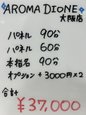 AROMA DIONE
大阪店
パネル 90分
パネル 60分
本指名 90分
オプション +3000円×2
合計
¥37,000